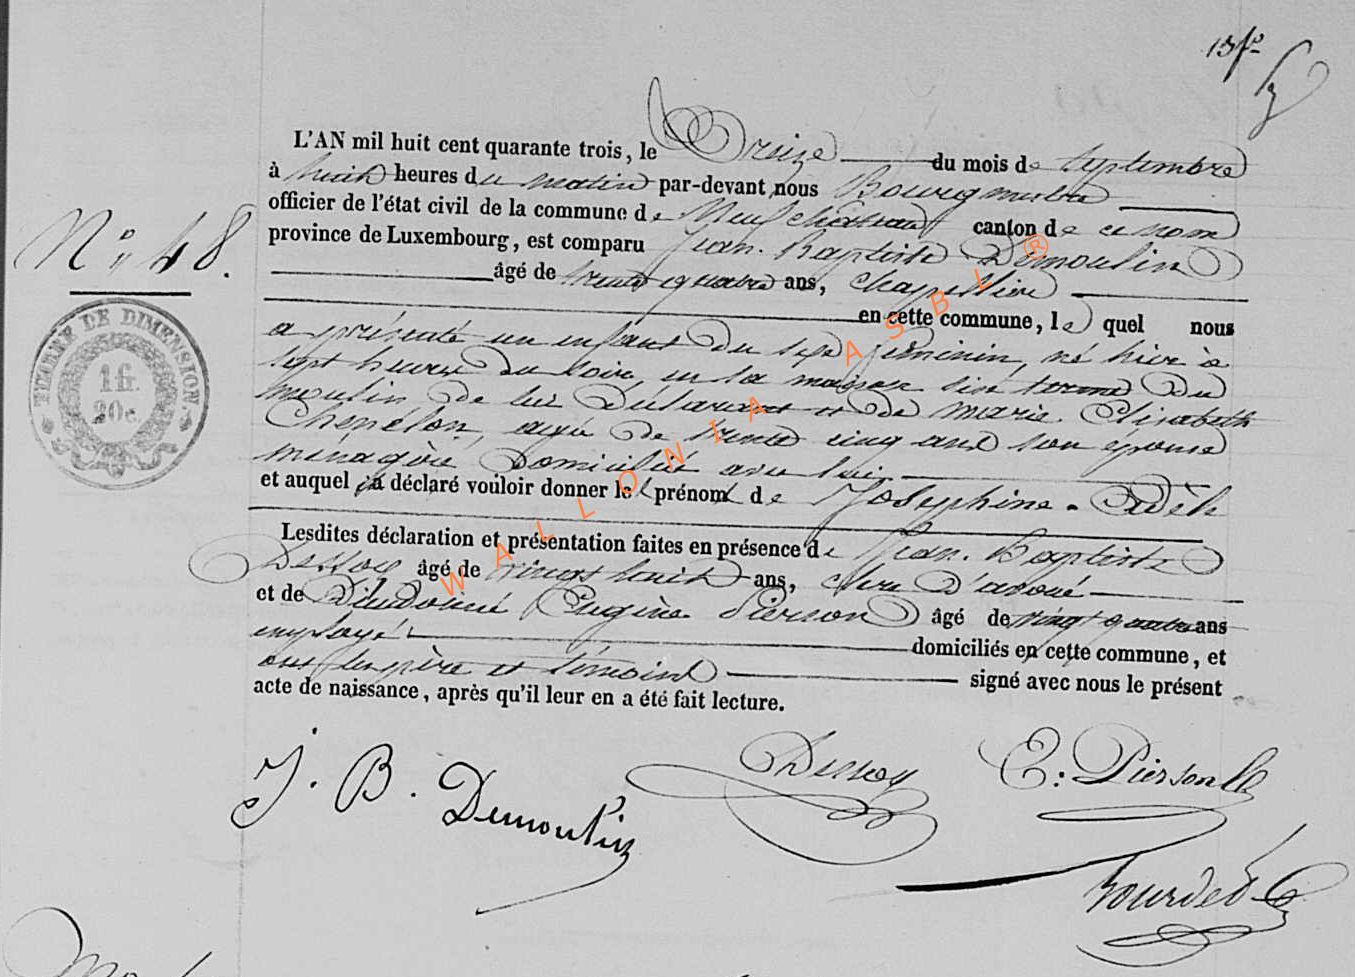 13 fo
L'AN mil huit cent quarante trois, le Treize du mois de Septembre
à huit heures du matin par-devant nous Bourgmestre
officier de l'état civil de la commune de Neufchâteau canton de ce nom
province de Luxembourg, est comparu Jean-Baptiste Demoulin
N° 48.
âgé de trente quatre ans, Chapellier
en cette commune, lequel nous
a présenté un enfant du sexe féminin, né hier à
sept heures du soir en la maison sise du
moulin de lui Déclarant et de Marie-Elisabeth
Chenélon, agée de trente cinq ans son épouse
ménagère Domiciliée avec lui.
et auquel il a déclaré vouloir donner le prénom de Joséphine-Adèle
Lesdites déclaration et présentation faites en présence de Jean-Baptiste
Dessoy âgé de vingt huit ans, clerc d'avoué
et de Dieudonné Eugène Pierson âgé de vingt quatre ans
employé domiciliés en cette commune, et
ont les père et témoins signé avec nous le présent
acte de naissance, après qu'il leur en a été fait lecture.
TIMBRE DE DIMENSION
1 fr.
20 c.
J. B. Demoulin
Dessoy
E. Pierson
WALLONIA ASBL ®